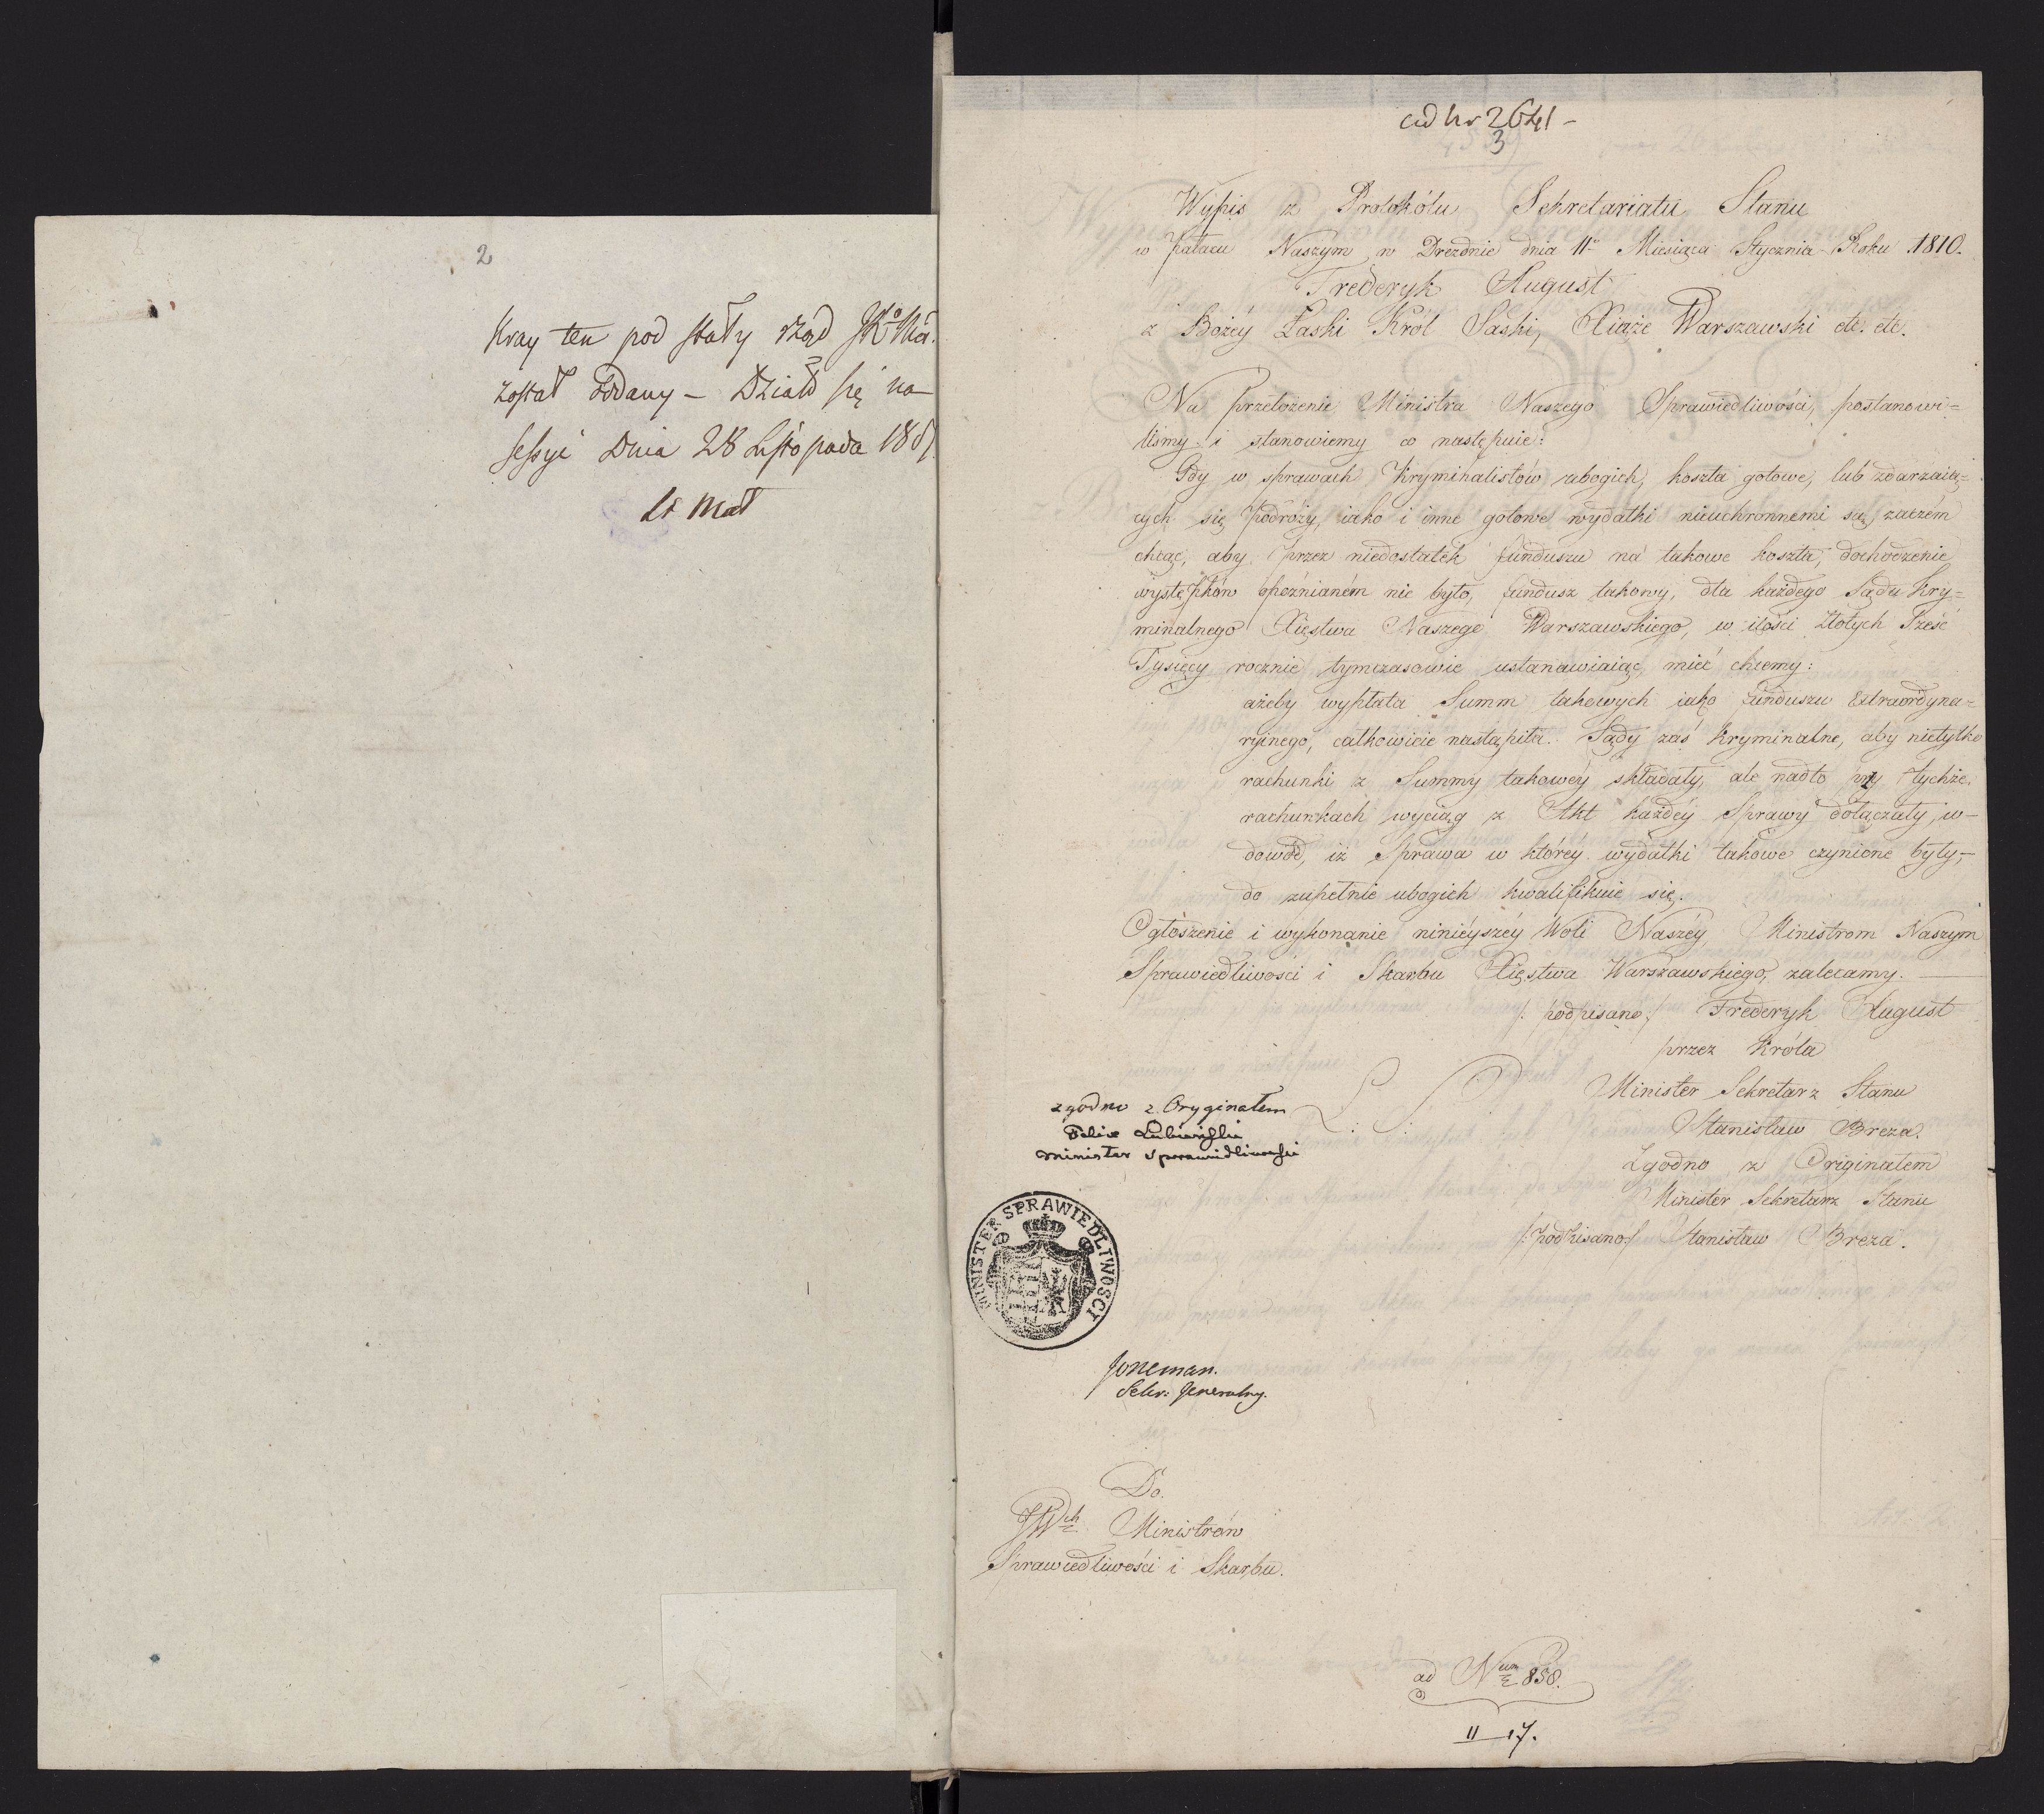 2
Kray ten pod stały rząd JKo Mci.
został oddany – Działo się na
Sessyi Dnia 28 Listopada 1807.
ad Nr 2641 –
3
Wypis z Protokółu Sekretariatu Stanu
w Pałacu Naszym w Dreznie dnia 11o Miesiąca Stycznia Roku 1810.
Frederyk August
z Bożéy Łaski Król Saski, Xiąże Warszawski etc. etc.
Na przełożenie Ministra Naszego Sprawiedliwości, postanowi=
liśmy i stanowiemy co następuie:
Gdy w sprawach Kryminalistów ubogich, koszta gotowe, lub zdarzaią=
cych się podróży, iako i inne gotowe wydatki nieuchronnemi są, zaczém
chcąc, aby przez niedostatek funduszu na takowe koszta, dochodzenie
występków opóźnianém nie było, fundusz takowy, dla każdego Sądu Kry=
minalnego Xięstwa Naszego Warszawskiego, w ilości Złotych Sześć
Tysięcy rocznie tymczasowie ustanawiaiąc, mieć chcemy:
ażeby wypłata Summ takowych iako funduszu Extraordyna=
ryinego, całkowicie nastąpiła. Sądy zaś Kryminalne, aby nietylko
rachunki z Summy takowéy składały, ale nadto przy tychże
rachunkach wyciąg z Akt każdéy Sprawy dołączały, w–
dowód, iż Sprawa w któréy wydatki takowe czynione były,–
do zupełnie ubogich kwalifikuie się.
Ogłoszenie i wykonanie ninieyszéy Woli Naszéy Ministrom Naszym
Sprawiedliwości i Skarbu Xięstwa Warszawskiego, zalecamy.
/: podpisano :/ Frederyk August
przez Króla
L. S. Minister Sekretarz Stanu
Stanisław Breza.
Zgodno z Originałem
Minister Sekretarz Stanu
/: podpisano :/ Stanisław Breza.
zgodno z Oryginałem
Felix Lubieński
Minister Sprawiedliwości
MINISTER SPRAWIEDLIWOSCI
Joneman.
Sekr: Jeneralny.
Do
JWch Ministrów
Sprawiedliwości i Skarbu.
ad Num 858.
II 17.